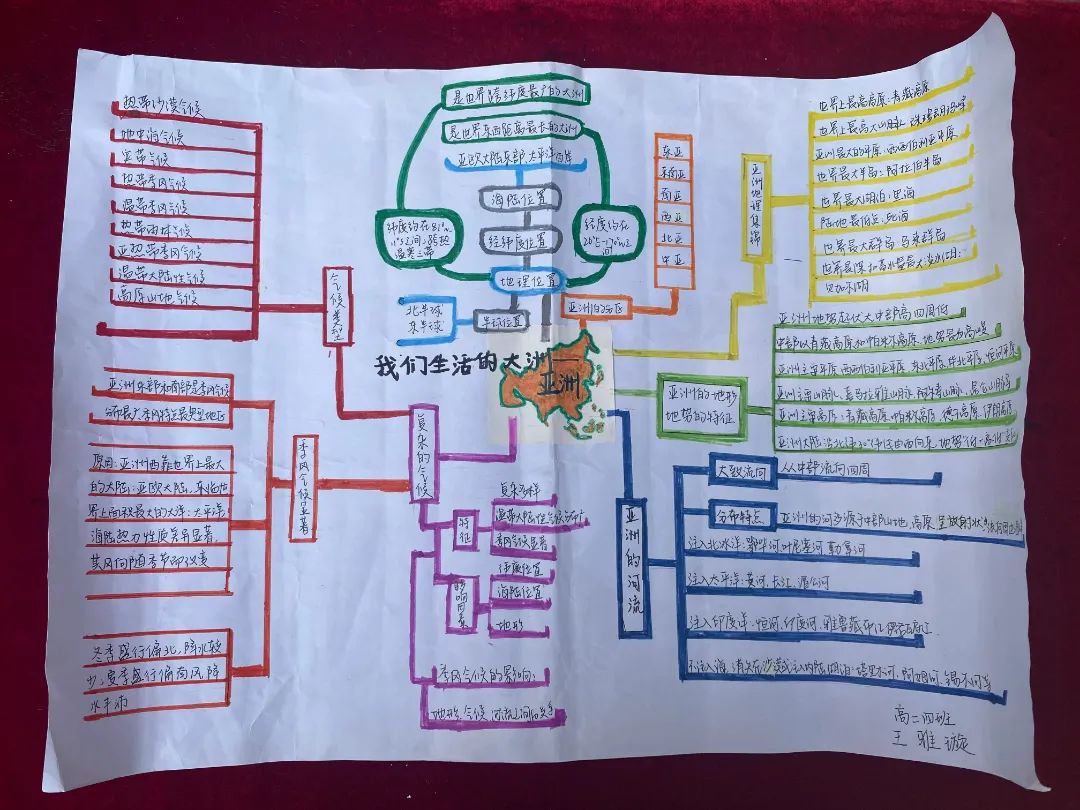 我们生活的大洲——
亚洲
是世界跨纬度最广的大洲
是世界东西距离最长的大洲
亚欧大陆东部,太平洋西岸
海陆位置
经纬度位置
地理位置
半球位置
北半球
东半球
温寒三带
亚洲的分区
东亚
东南亚
南亚
西亚
北亚
中亚
亚洲地理集锦
世界上最高高原:青藏高原
世界上最高大山脉
亚洲最大的平原:西西伯利亚平原
世界最大半岛:阿拉伯半岛
世界最大湖泊:里海
陆地最低点:死海
世界最大群岛 马来群岛
贝加尔湖
亚洲的地形
地势的特征
亚洲地势起伏大中部高四周低
中部以青藏高原和帕米尔高原,地势最为高峻
亚洲主要平原 西西伯利亚平原 东北平原 华北平原 恒河平原
亚洲主要山脉 喜马拉雅山脉 阿尔泰山脉 昆仑山脉
亚洲主要高原:青藏高原 帕米尔高原 德干高原 伊朗高原
亚洲的河流
大致流向
从中部流向四周
分布特点
亚洲的河多源于中部山地,高原 呈放射状
注入北冰洋:鄂毕河,叶尼塞河 勒拿河
注入太平洋:黄河、长江、湄公河
注入印度洋:恒河,印度河、雅鲁藏布江
塔里木河、阿姆河、锡尔河等
复杂的气候
气候类型
热带沙漠气候
地中海气候
寒带气候
热带季风气候
温带季风气候
热带雨林气候
亚热带季风气候
温带大陆性气候
高原山地气候
季风气候显著
亚洲东部和南部是季风气候
分布最广季风特征最典型地区
原因:亚洲西靠世界上最大
的大陆:亚欧大陆,东临世
界上面积最大的大洋:太平洋
海陆热力性质差异显著,
其风向随季节而改变
冬季盛行偏北,降水较
少;夏季盛行偏南风降
水丰沛
特征
复杂多样
温带大陆性气候分布广
季风气候显著
影响因素
纬度位置
海陆位置
地形
季风气候的影响:
地形、气候、河流之间的关系
高二四班
王雅璇